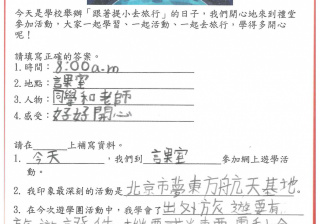 今天是學校舉辦「跟著提小去旅行」的日子，我們開心地來到禮堂
參加活動，大家一起學習、一起活動、一起去旅行，學得多開心
呢！
請填寫正確的答案。
1. 時間：8:00a.m
2. 地點：言果室
3. 人物：同學和老師
4. 感受：好好開心
請在____上補寫資料。
1. 今天，我們到言果室參加網上遊學活
動。
2. 我印象最深刻的活動是北京市 東方航天其地.
3. 在今次遊學團活動中，我學會了出外旅遊要有